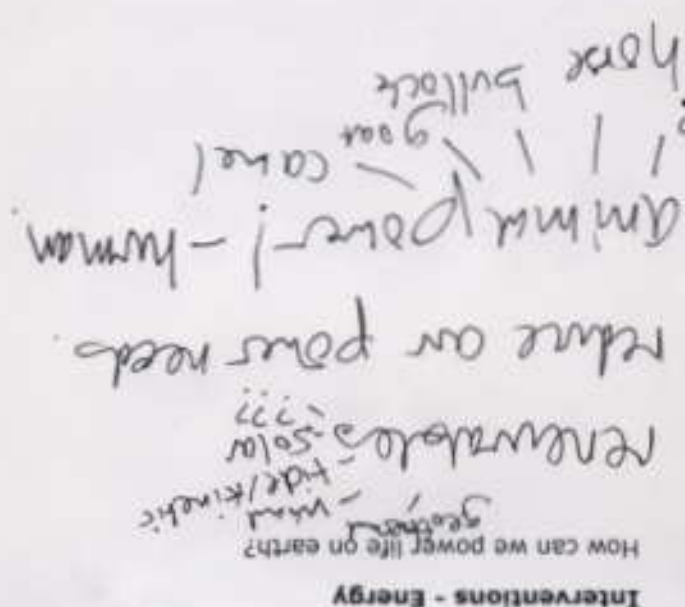 Interventions - Energy
How can we power life on earth?
geothermal
- wind
- tide/kinetic
renewables - solar
- ???
reduce our power needs.
animal power! - human.
camel
goat
bullock
horse